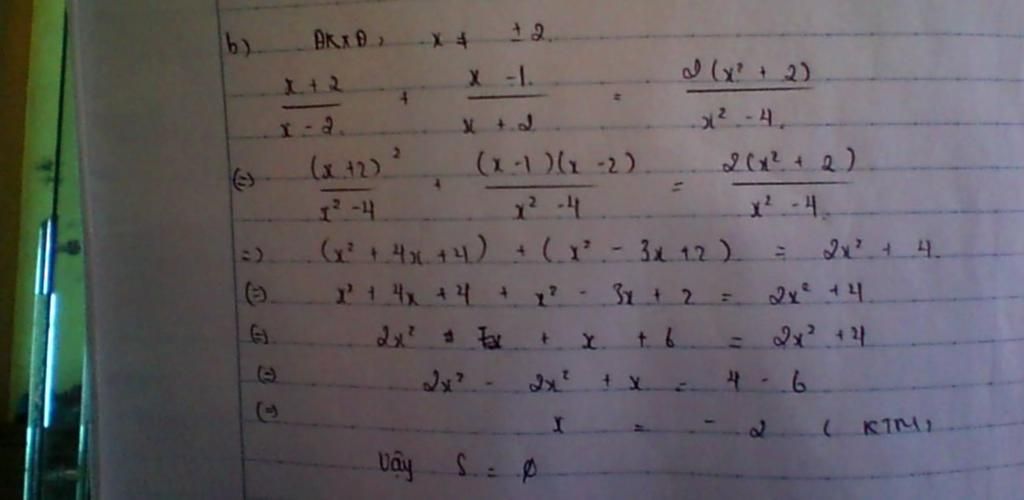 b) ĐKXĐ, x ≠ ± 2
(x + 2)/(x - 2) + (x - 1)/(x + 2) = 2(x² + 2)/(x² - 4)
(=) (x + 2)²/(x² - 4) + (x - 1)(x - 2)/(x² - 4) = 2(x² + 2)/(x² - 4)
=) (x² + 4x + 4) + (x² - 3x + 2) = 2x² + 4
(=) x² + 4x + 4 + x² - 3x + 2 = 2x² + 4
(=) 2x² + x + 6 = 2x² + 4
(=) 2x² - 2x² + x = 4 - 6
(=) x = - 2 ( KTM)
Vậy S = ∅